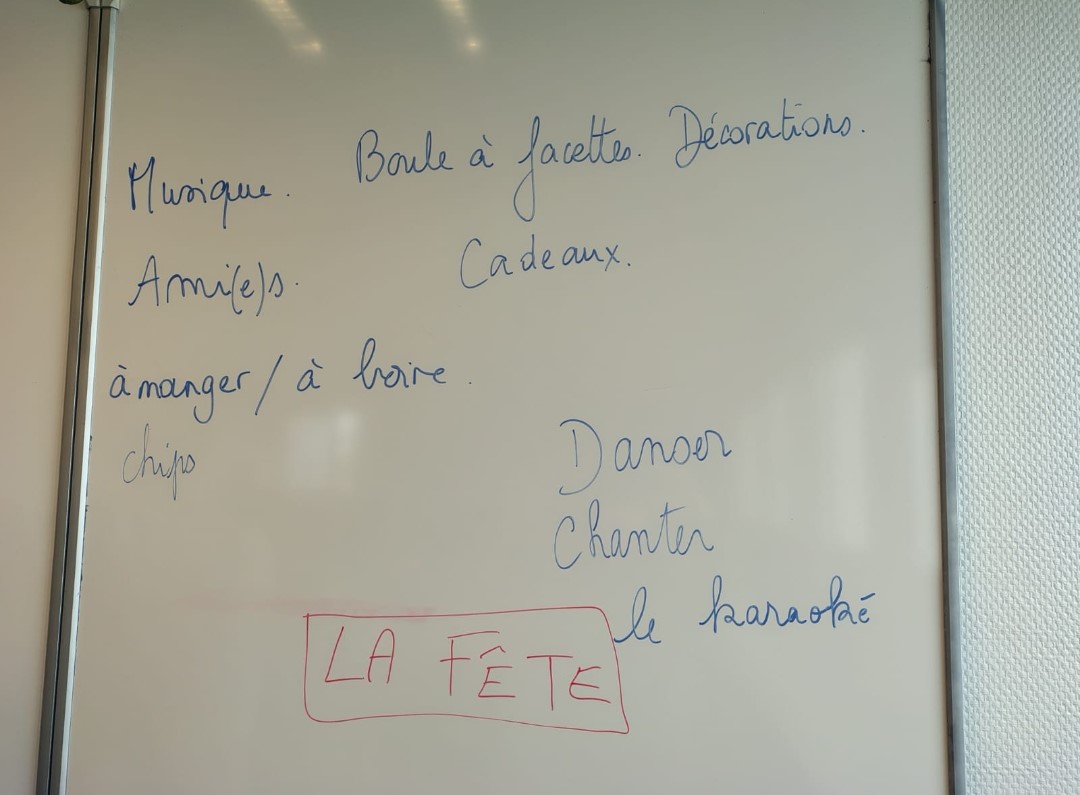 Musique. Boule à facettes. Décorations.
Ami(e)s. Cadeaux.
à manger / à boire.
chips
Danser
Chanter
le karaoké
LA FÊTE